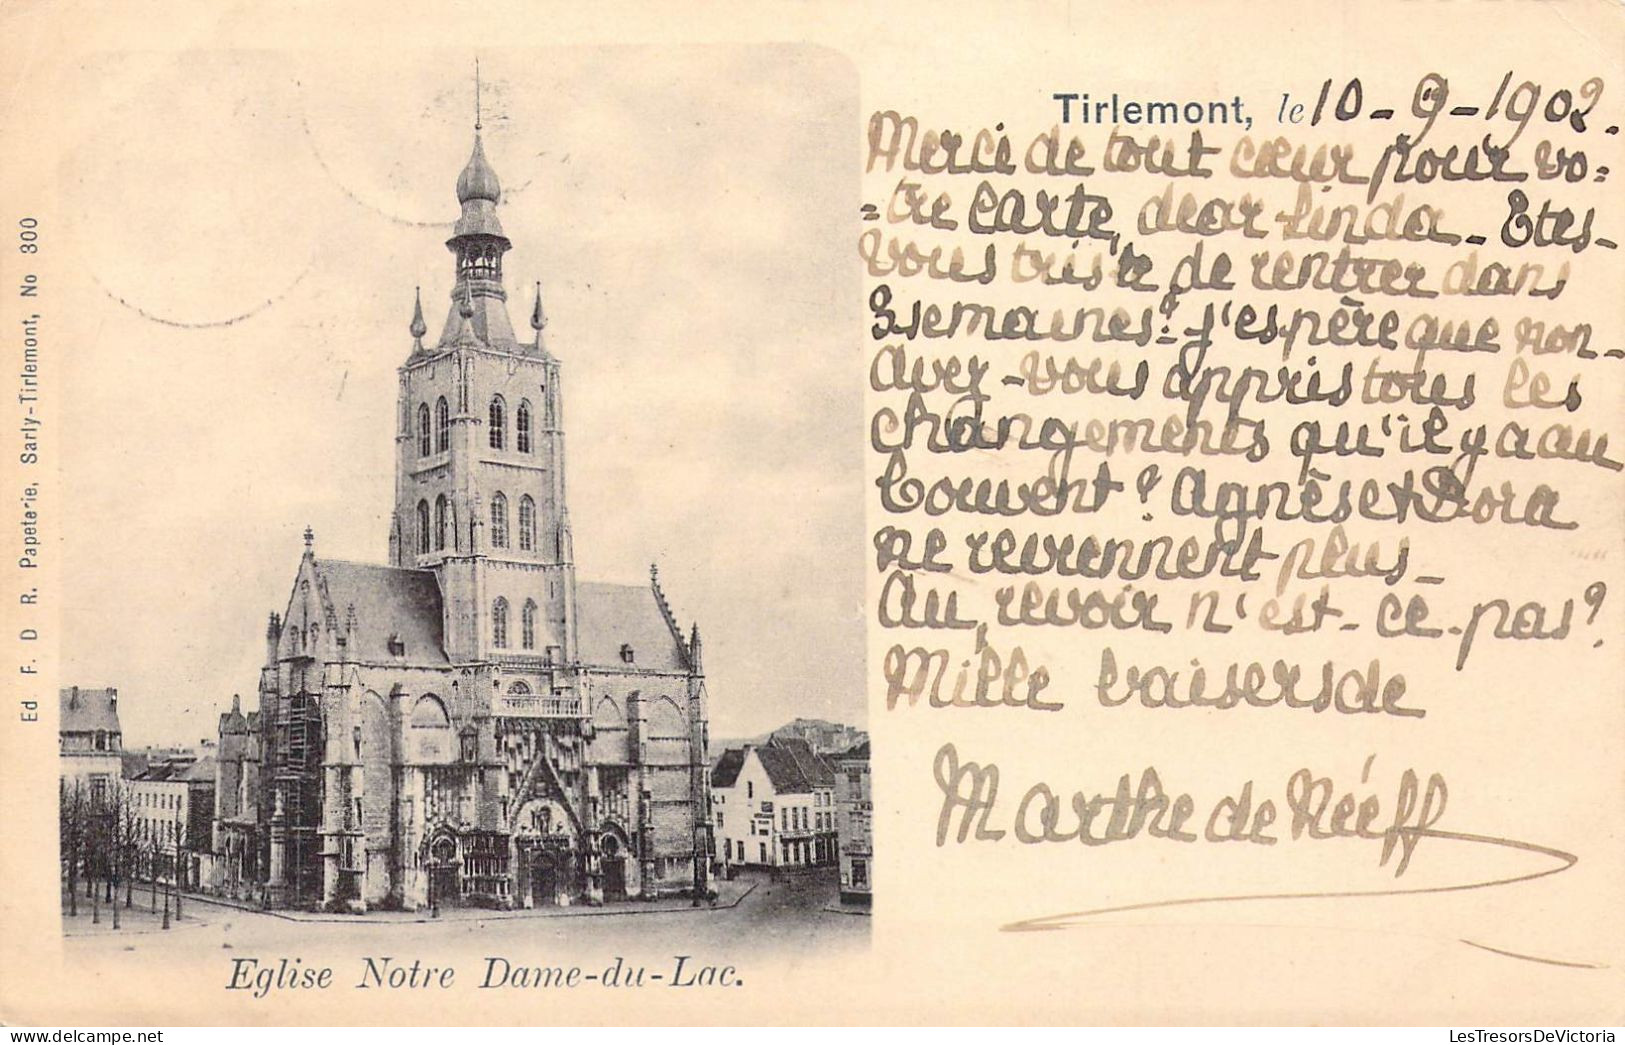 Tirlemont, le 10-9-1902.
Merci de tout cœur pour vo=
=tre carte, dear Linda_ Etes-
vous triste de rentrer dans
3 semaines? j'espère que non_
avez-vous appris tous les
changements qu'il y a au
Couvent? Agnès et Dora
ne reviennent plus_
Au revoir n'est-ce-pas?
Mille baisers de
Marthe de Néeff
Ed F. D R. Papeterie, Sarly-Tirlemont, No 300
Eglise Notre Dame-du-Lac.
LesTresorsDeVictoria